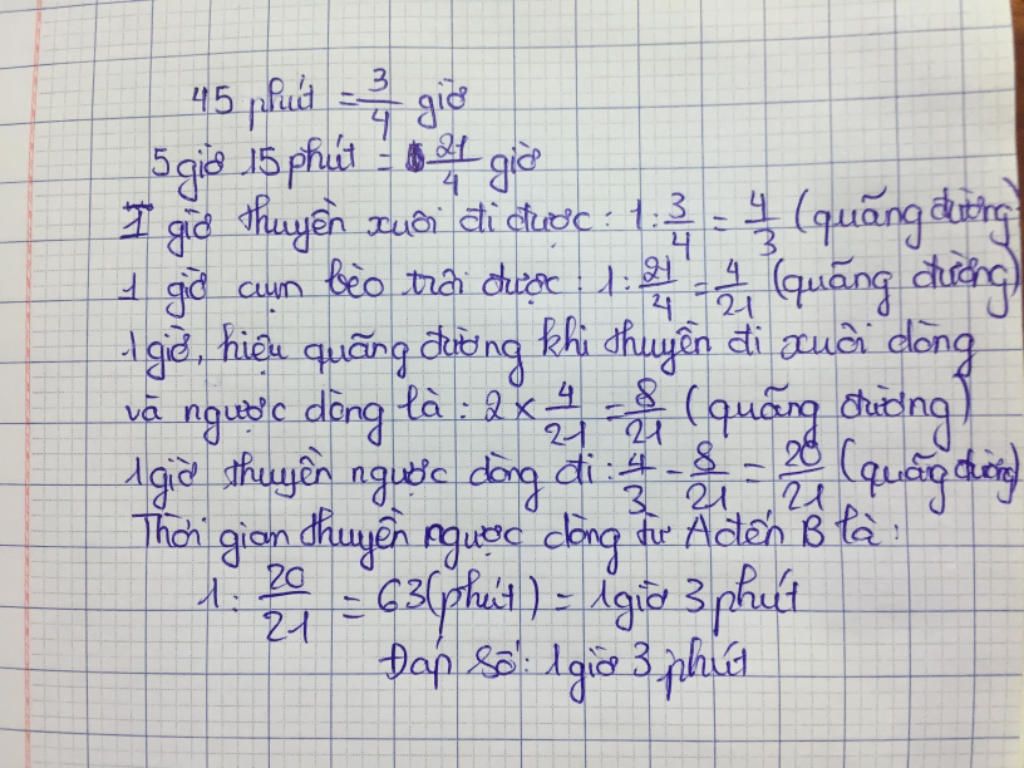 45 phút = 3/4 giờ
5 giờ 15 phút = 21/4 giờ
1 giờ thuyền xuôi đi được: 1 : 3/4 = 4/3 (quãng đường)
1 giờ cụm bèo trôi được: 1 : 21/4 = 4/21 (quãng đường)
1 giờ, hiệu quãng đường khi thuyền đi xuôi dòng
và ngược dòng là : 2 × 4/21 = 8/21 (quãng đường)
1 giờ thuyền ngược dòng đi : 4/3 - 8/21 = 20/21 (quãng đường)
Thời gian thuyền ngược dòng từ A đến B là:
1 : 20/21 = 63 (phút) = 1 giờ 3 phút
Đáp số: 1 giờ 3 phút